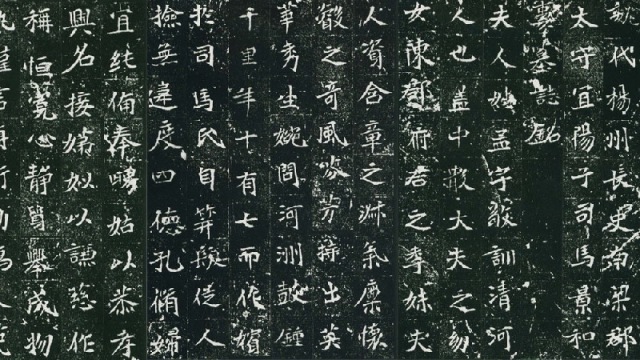 魏代楊州長史南梁郡
太守宜陽子司馬景和
妻墓誌銘
夫人姓孟字敬訓清河
人也蓋中散大夫之幼
女陳郡府君之季妹夫
人資含章之淑氣稟懷
叡之奇風芬芳特出英
華秀生婉問河洲鼓鍾
千里年十有七而作嬪
於司馬氏自笄髮從人
撿無違度四德孔脩婦
宜純備奉轉姑以恭孝
興名接娣姒以謙慈作
稱恒寬心靜質舉成物
軌謹言慎行動為人範